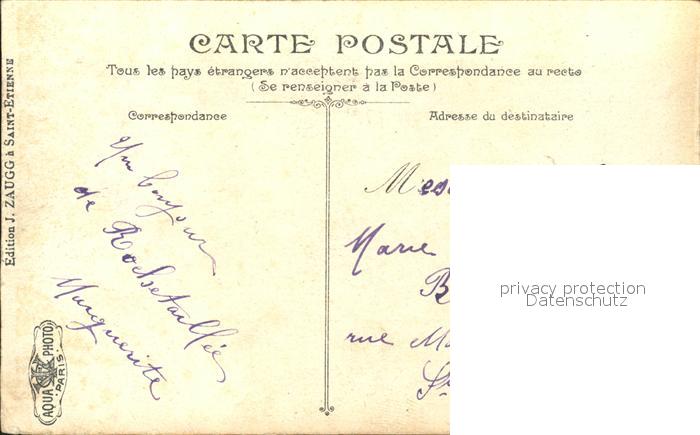 CARTE POSTALE
Tous les pays étrangers n'acceptent pas la Correspondance au recto
(Se renseigner à la Poste)
Correspondance
Adresse du destinataire
Édition J. ZAUGG à SAINT-ÉTIENNE
Un bonjour
de Rochetaillée
Marguerite
Marie
B
rue M
privacy protection
Datenschutz
AQUA PHOTO
PARIS